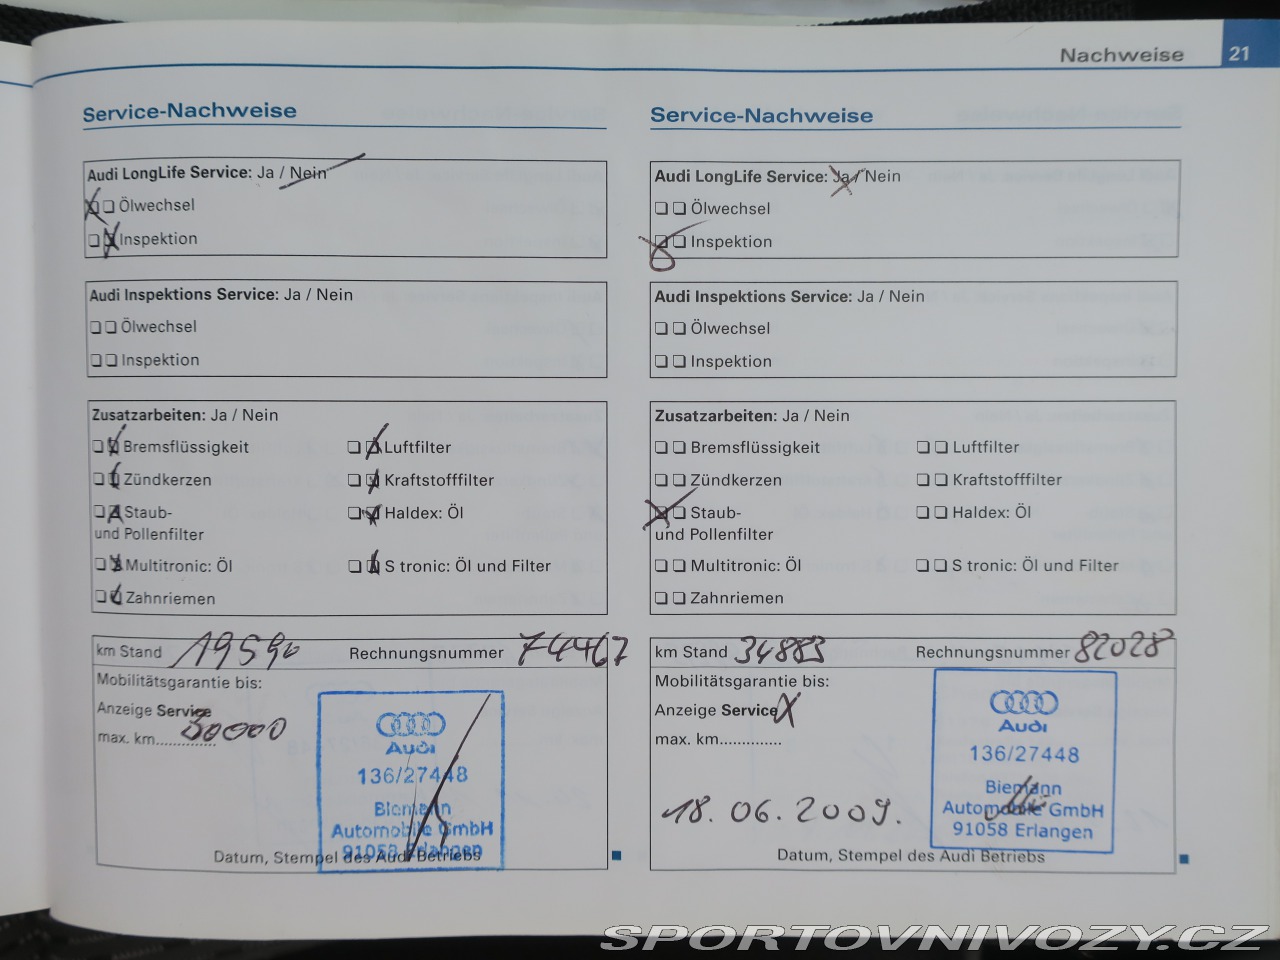 Nachweise 21
Service-Nachweise
Audi LongLife Service: Ja / Nein
Ölwechsel
Inspektion
Audi Inspektions Service: Ja / Nein
Ölwechsel
Inspektion
Zusatzarbeiten: Ja / Nein
Bremsflüssigkeit
Luftfilter
Zündkerzen
Kraftstofffilter
Staub-
und Pollenfilter
Haldex: Öl
Multitronic: Öl
S tronic: Öl und Filter
Zahnriemen
km Stand 19590
Rechnungsnummer 74467
Mobilitätsgarantie bis:
Anzeige Service
max. km.............. 30000
Audi
136/27448
Biemann
Automobile GmbH
91058 Erlangen
Datum, Stempel des Audi Betriebs
Service-Nachweise
Audi LongLife Service: Ja / Nein
Ölwechsel
Inspektion
Audi Inspektions Service: Ja / Nein
Ölwechsel
Inspektion
Zusatzarbeiten: Ja / Nein
Bremsflüssigkeit
Luftfilter
Zündkerzen
Kraftstofffilter
Staub-
und Pollenfilter
Haldex: Öl
Multitronic: Öl
S tronic: Öl und Filter
Zahnriemen
km Stand 34883
Rechnungsnummer 82028
Mobilitätsgarantie bis:
Anzeige Service X
max. km..............
18.06.2009.
Audi
136/27448
Biemann
Automobile GmbH
91058 Erlangen
Datum, Stempel des Audi Betriebs
SPORTOVNIVOZY.CZ